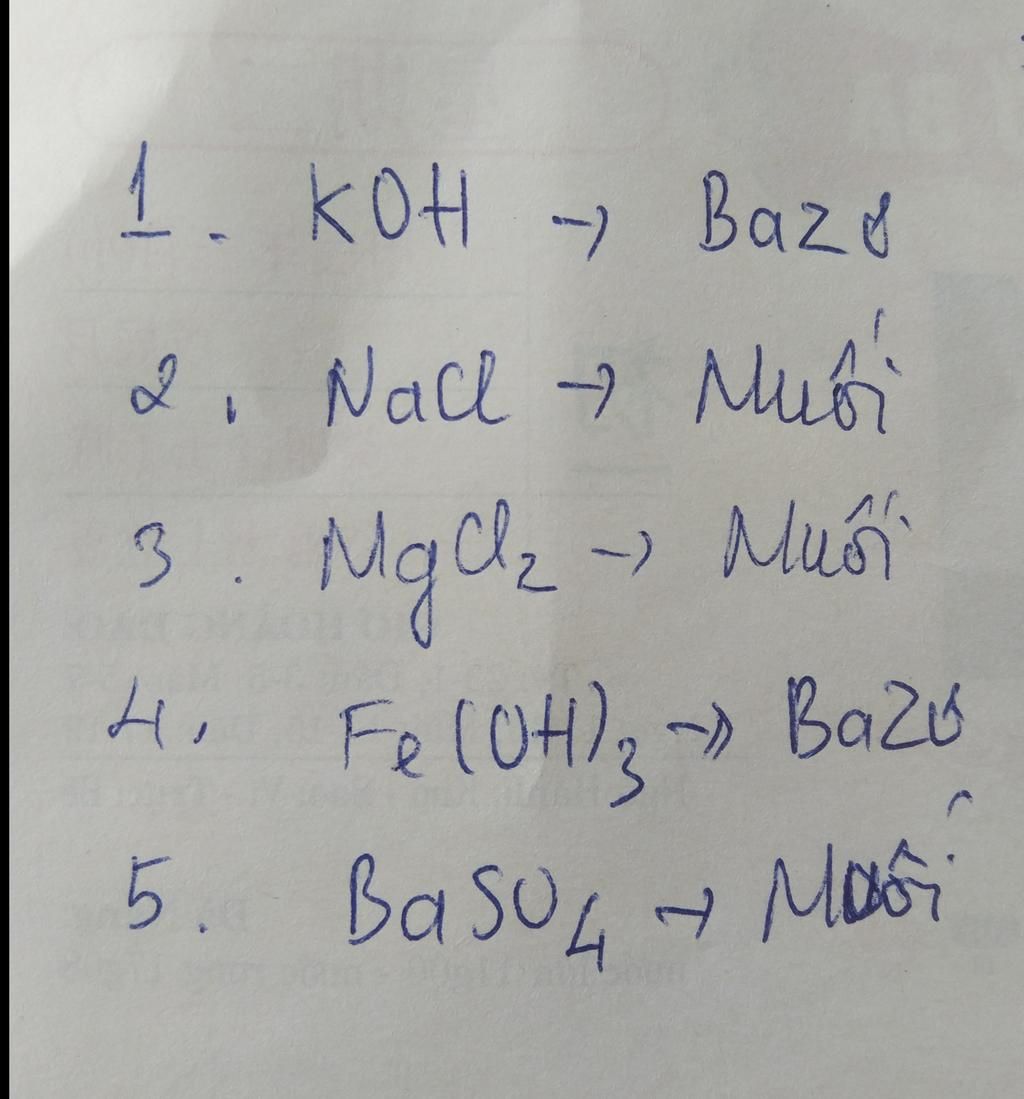 1. KOH → Bazơ
2. NaCl → Muối
3. MgCl₂ → Muối
4. Fe(OH)₃ → Bazơ
5. BaSO₄ → Muối